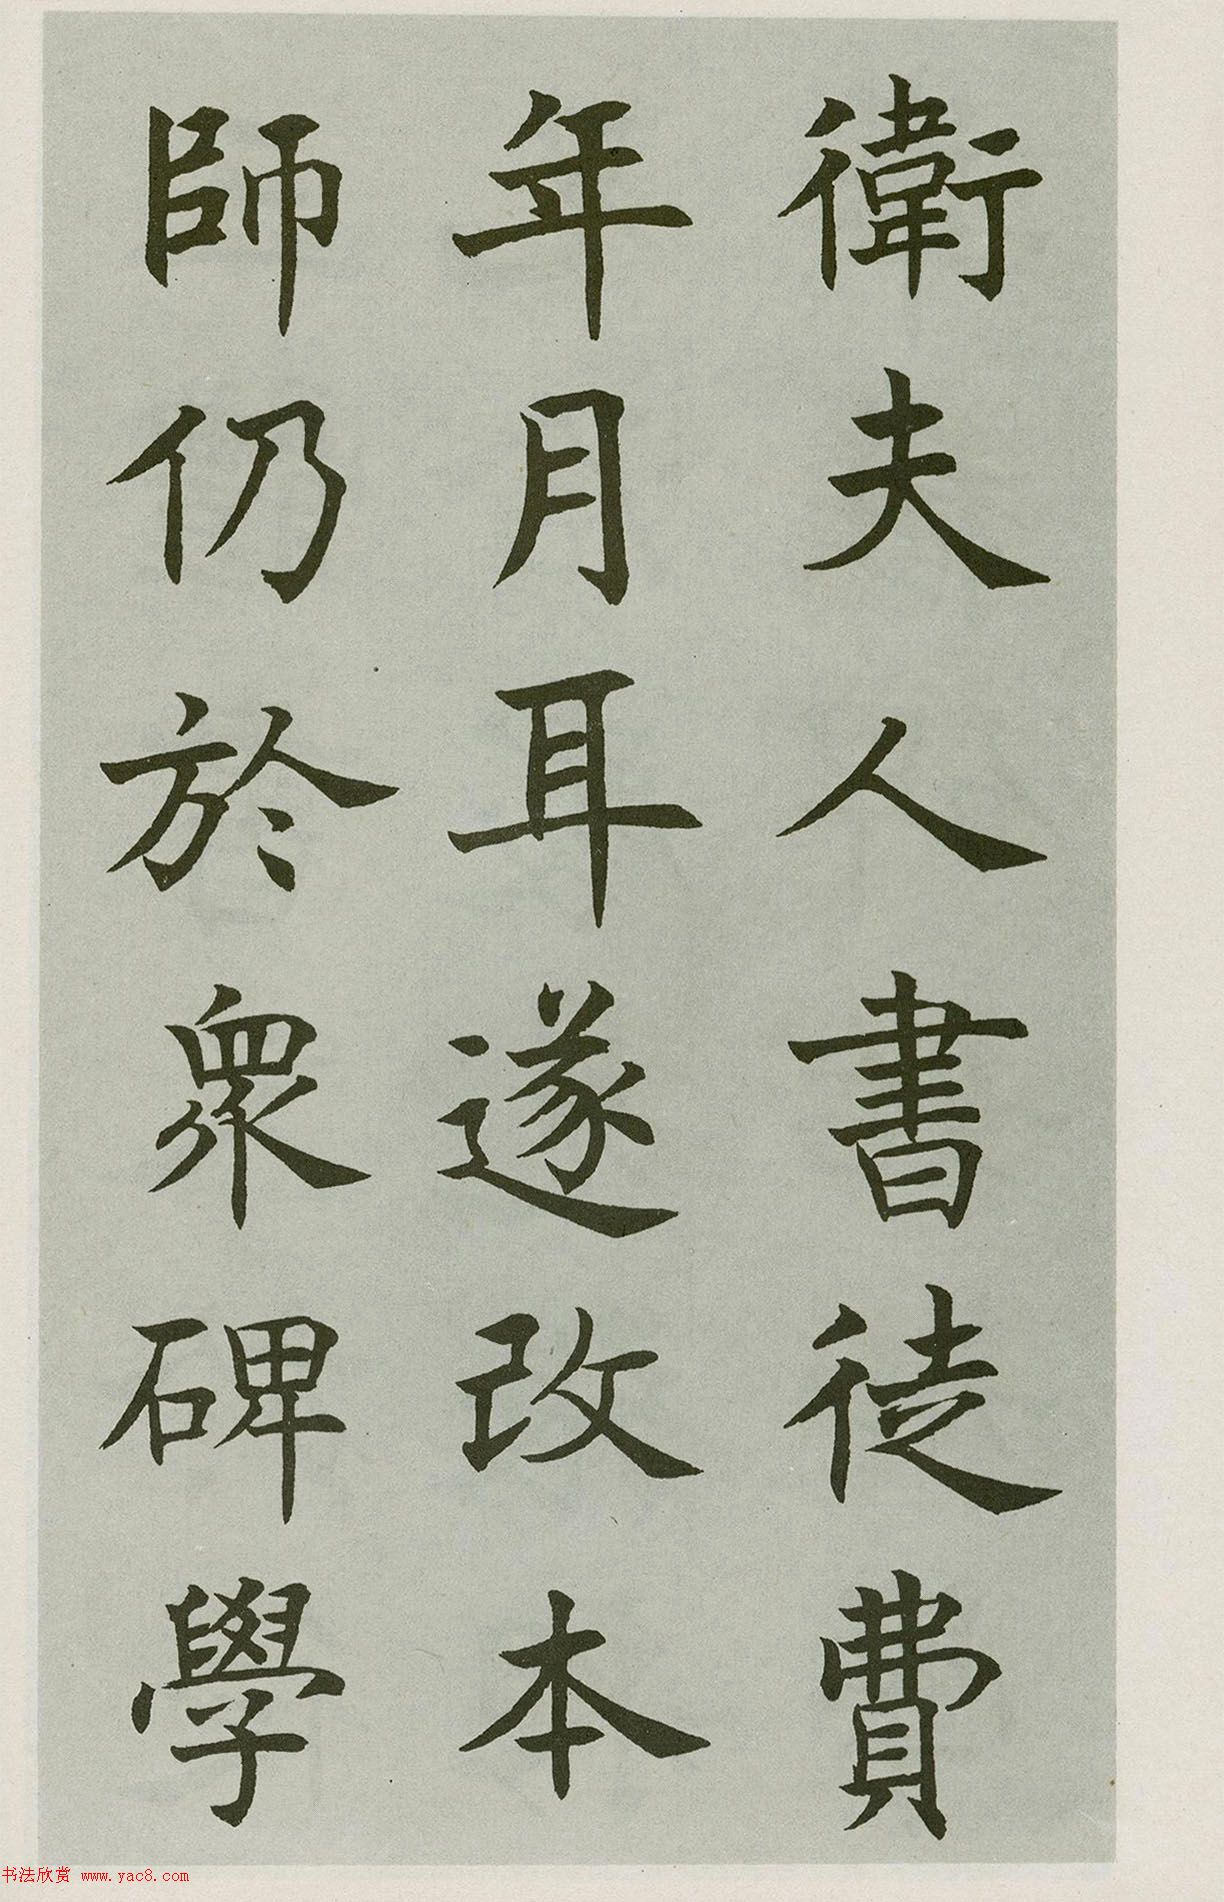 衛夫人書徒費
年月耳遂改本
師仍於眾碑學
书法欣赏 www.yac8.com